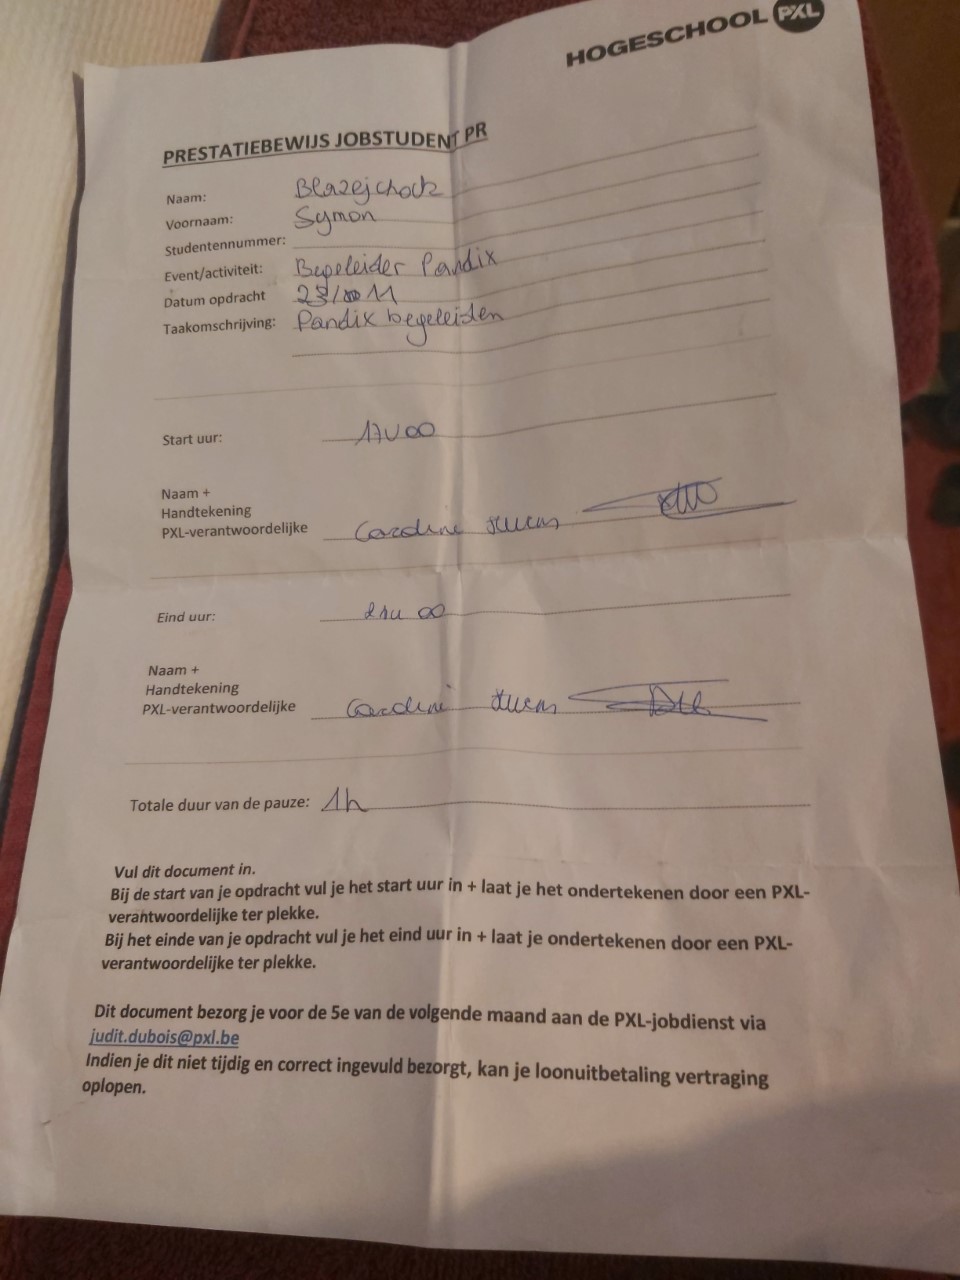 HOGESCHOOL PXL
PRESTATIEBEWIJS JOBSTUDENT PR
Naam: Blazejchock
Voornaam: Symon
Studentennummer:
Event/activiteit: Begeleider Pandix
Datum opdracht 23/11
Taakomschrijving: Pandix begeleiden
Start uur: 17u00
Naam +
Handtekening
PXL-verantwoordelijke Caroline
Eind uur: 21u 00
Naam +
Handtekening
PXL-verantwoordelijke Caroline
Totale duur van de pauze: 1h
Vul dit document in.
Bij de start van je opdracht vul je het start uur in + laat je het ondertekenen door een PXL-
verantwoordelijke ter plekke.
Bij het einde van je opdracht vul je het eind uur in + laat je ondertekenen door een PXL-
verantwoordelijke ter plekke.
Dit document bezorg je voor de 5e van de volgende maand aan de PXL-jobdienst via
judit.dubois@pxl.be
Indien je dit niet tijdig en correct ingevuld bezorgt, kan je loonuitbetaling vertraging
oplopen.